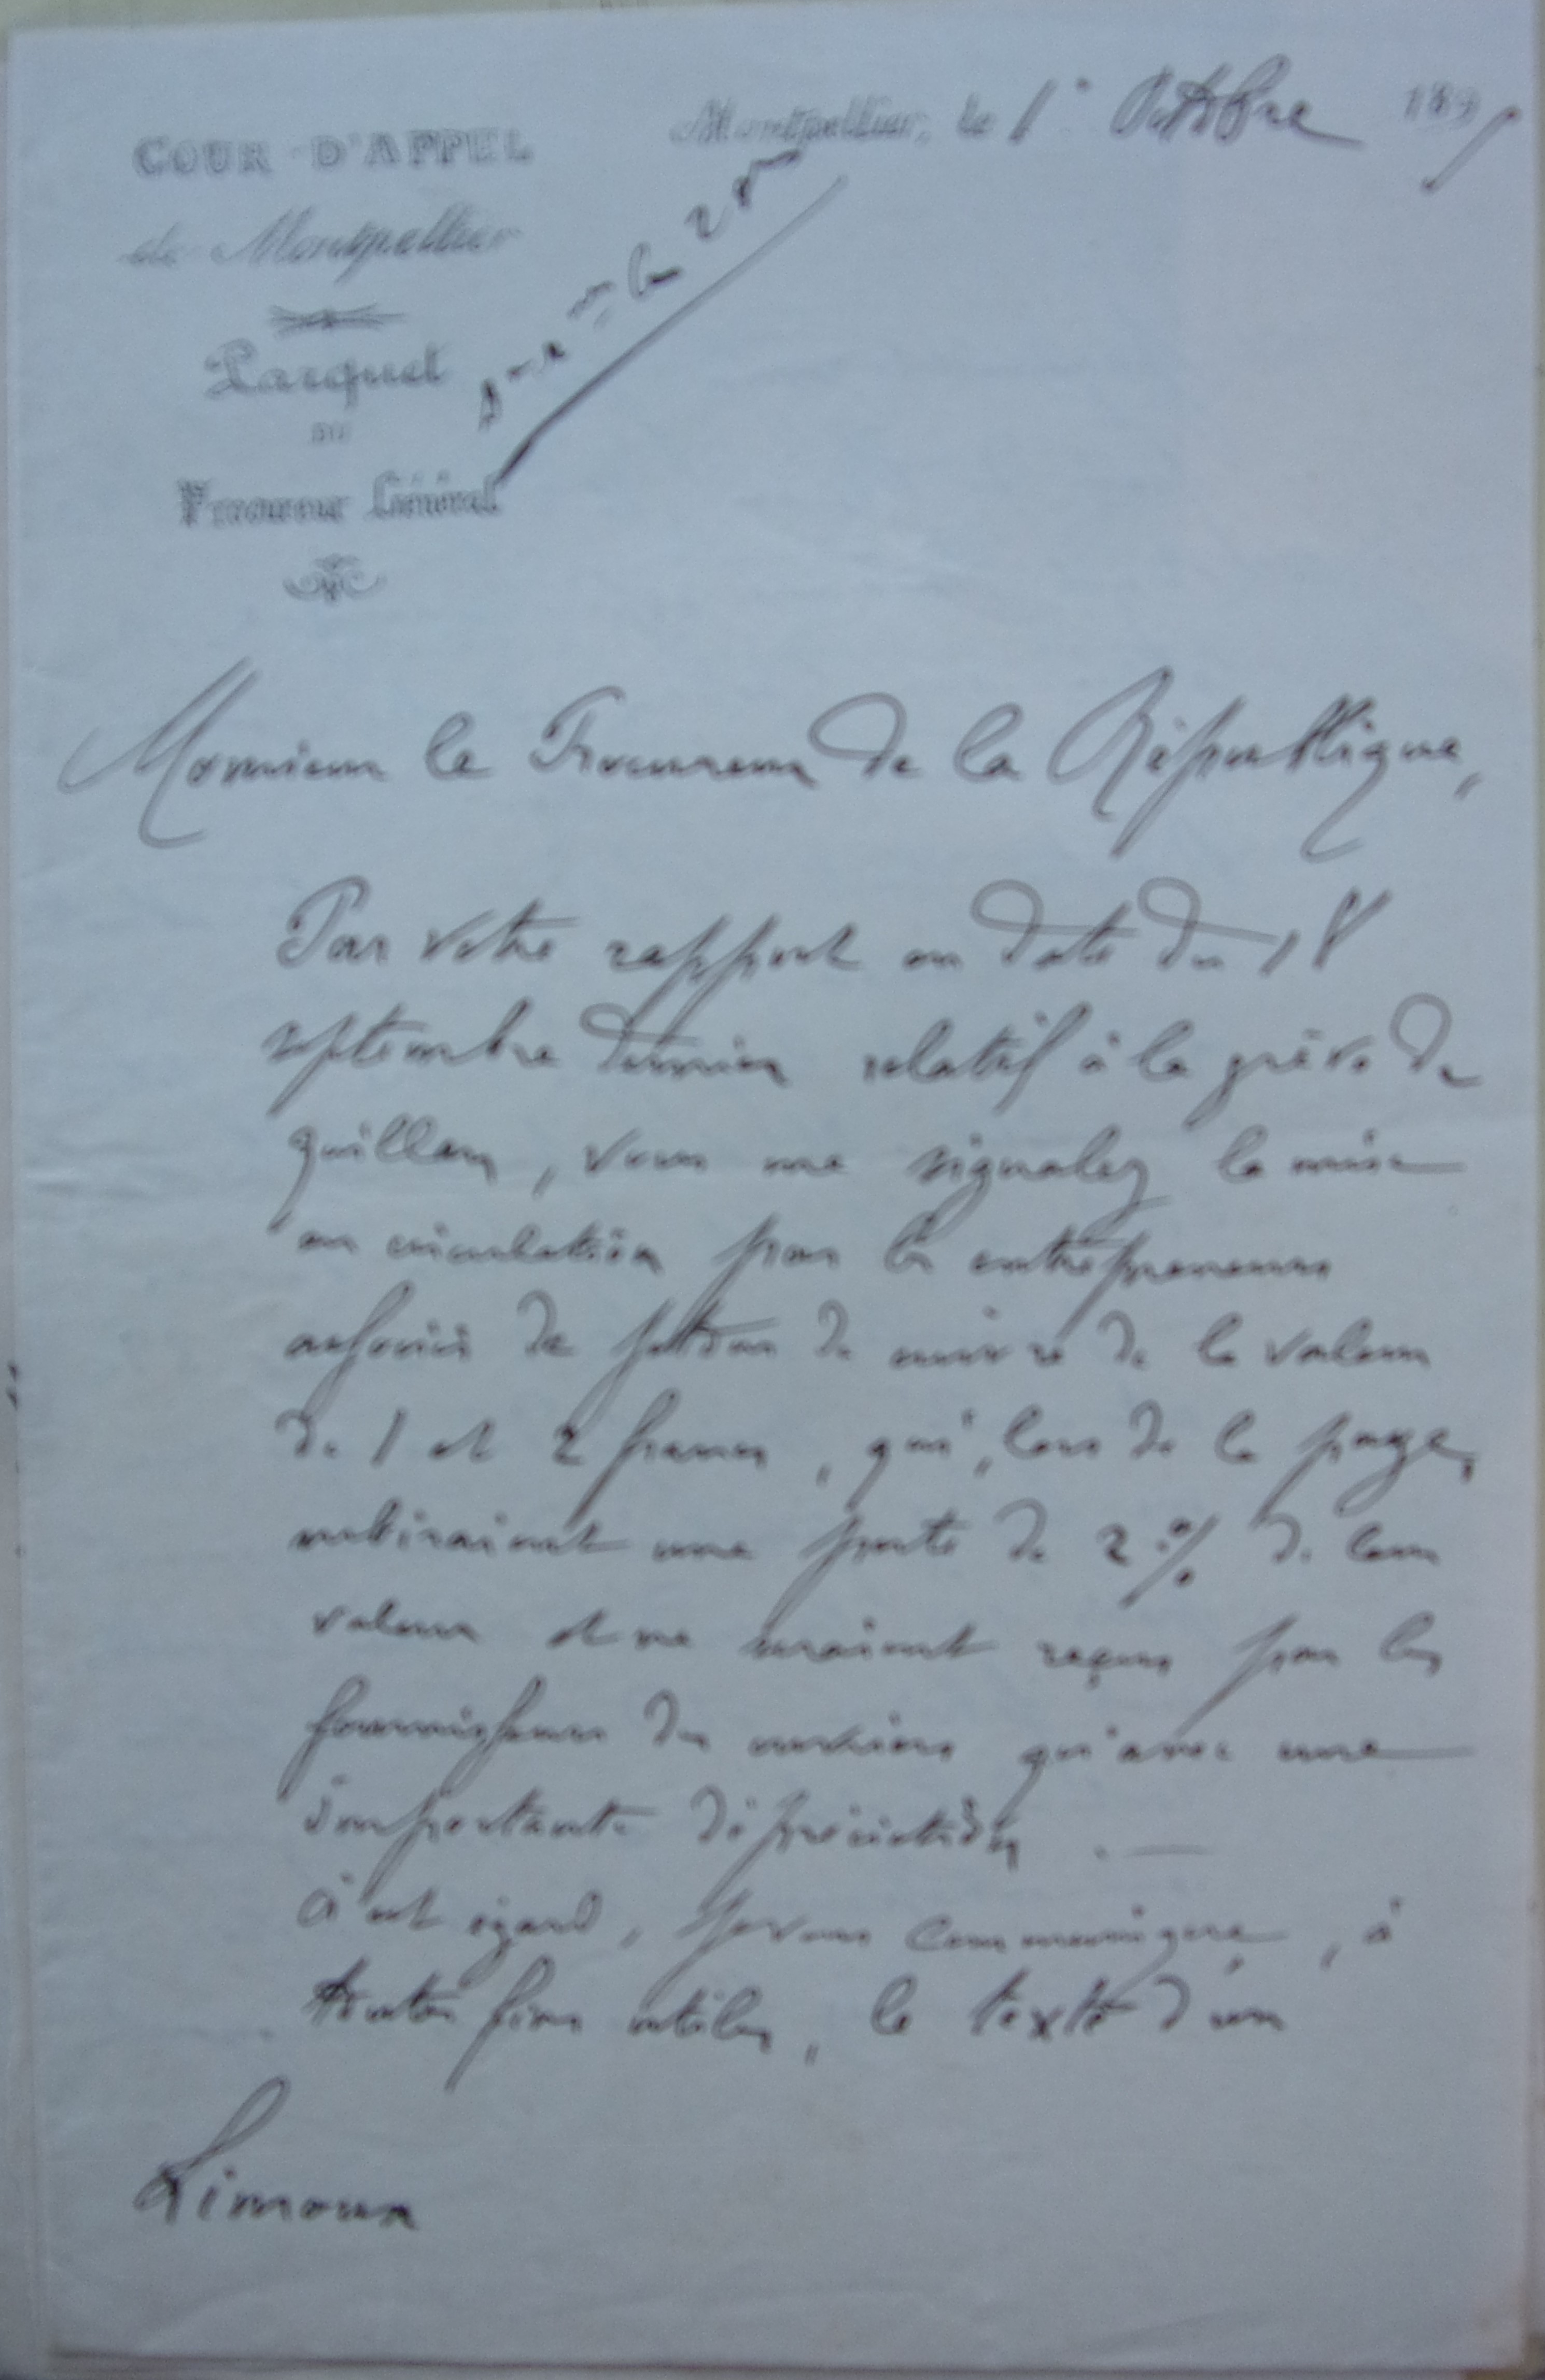 COUR D'APPEL
de Montpellier
Parquet
DU
Procureur Général
Montpellier, le 1er Octobre 189
Monsieur le Procureur de la République,
Par votre rapport en date du 18
septembre dernier relatif à la grève de
quillan, vous me signalez la mise
en circulation par les entrepreneurs
associés de jetons de cuivre de la valeur
de 1 et 2 francs, qui, lors de la paye,
subiraient une perte de 2 % de leur
valeur et ne seraient reçus par les
fournisseurs des ouvriers qu'avec une
importante dépréciation. —
à cet égard, je vous communique, à
toutes fins utiles, le texte d'un
Limoux